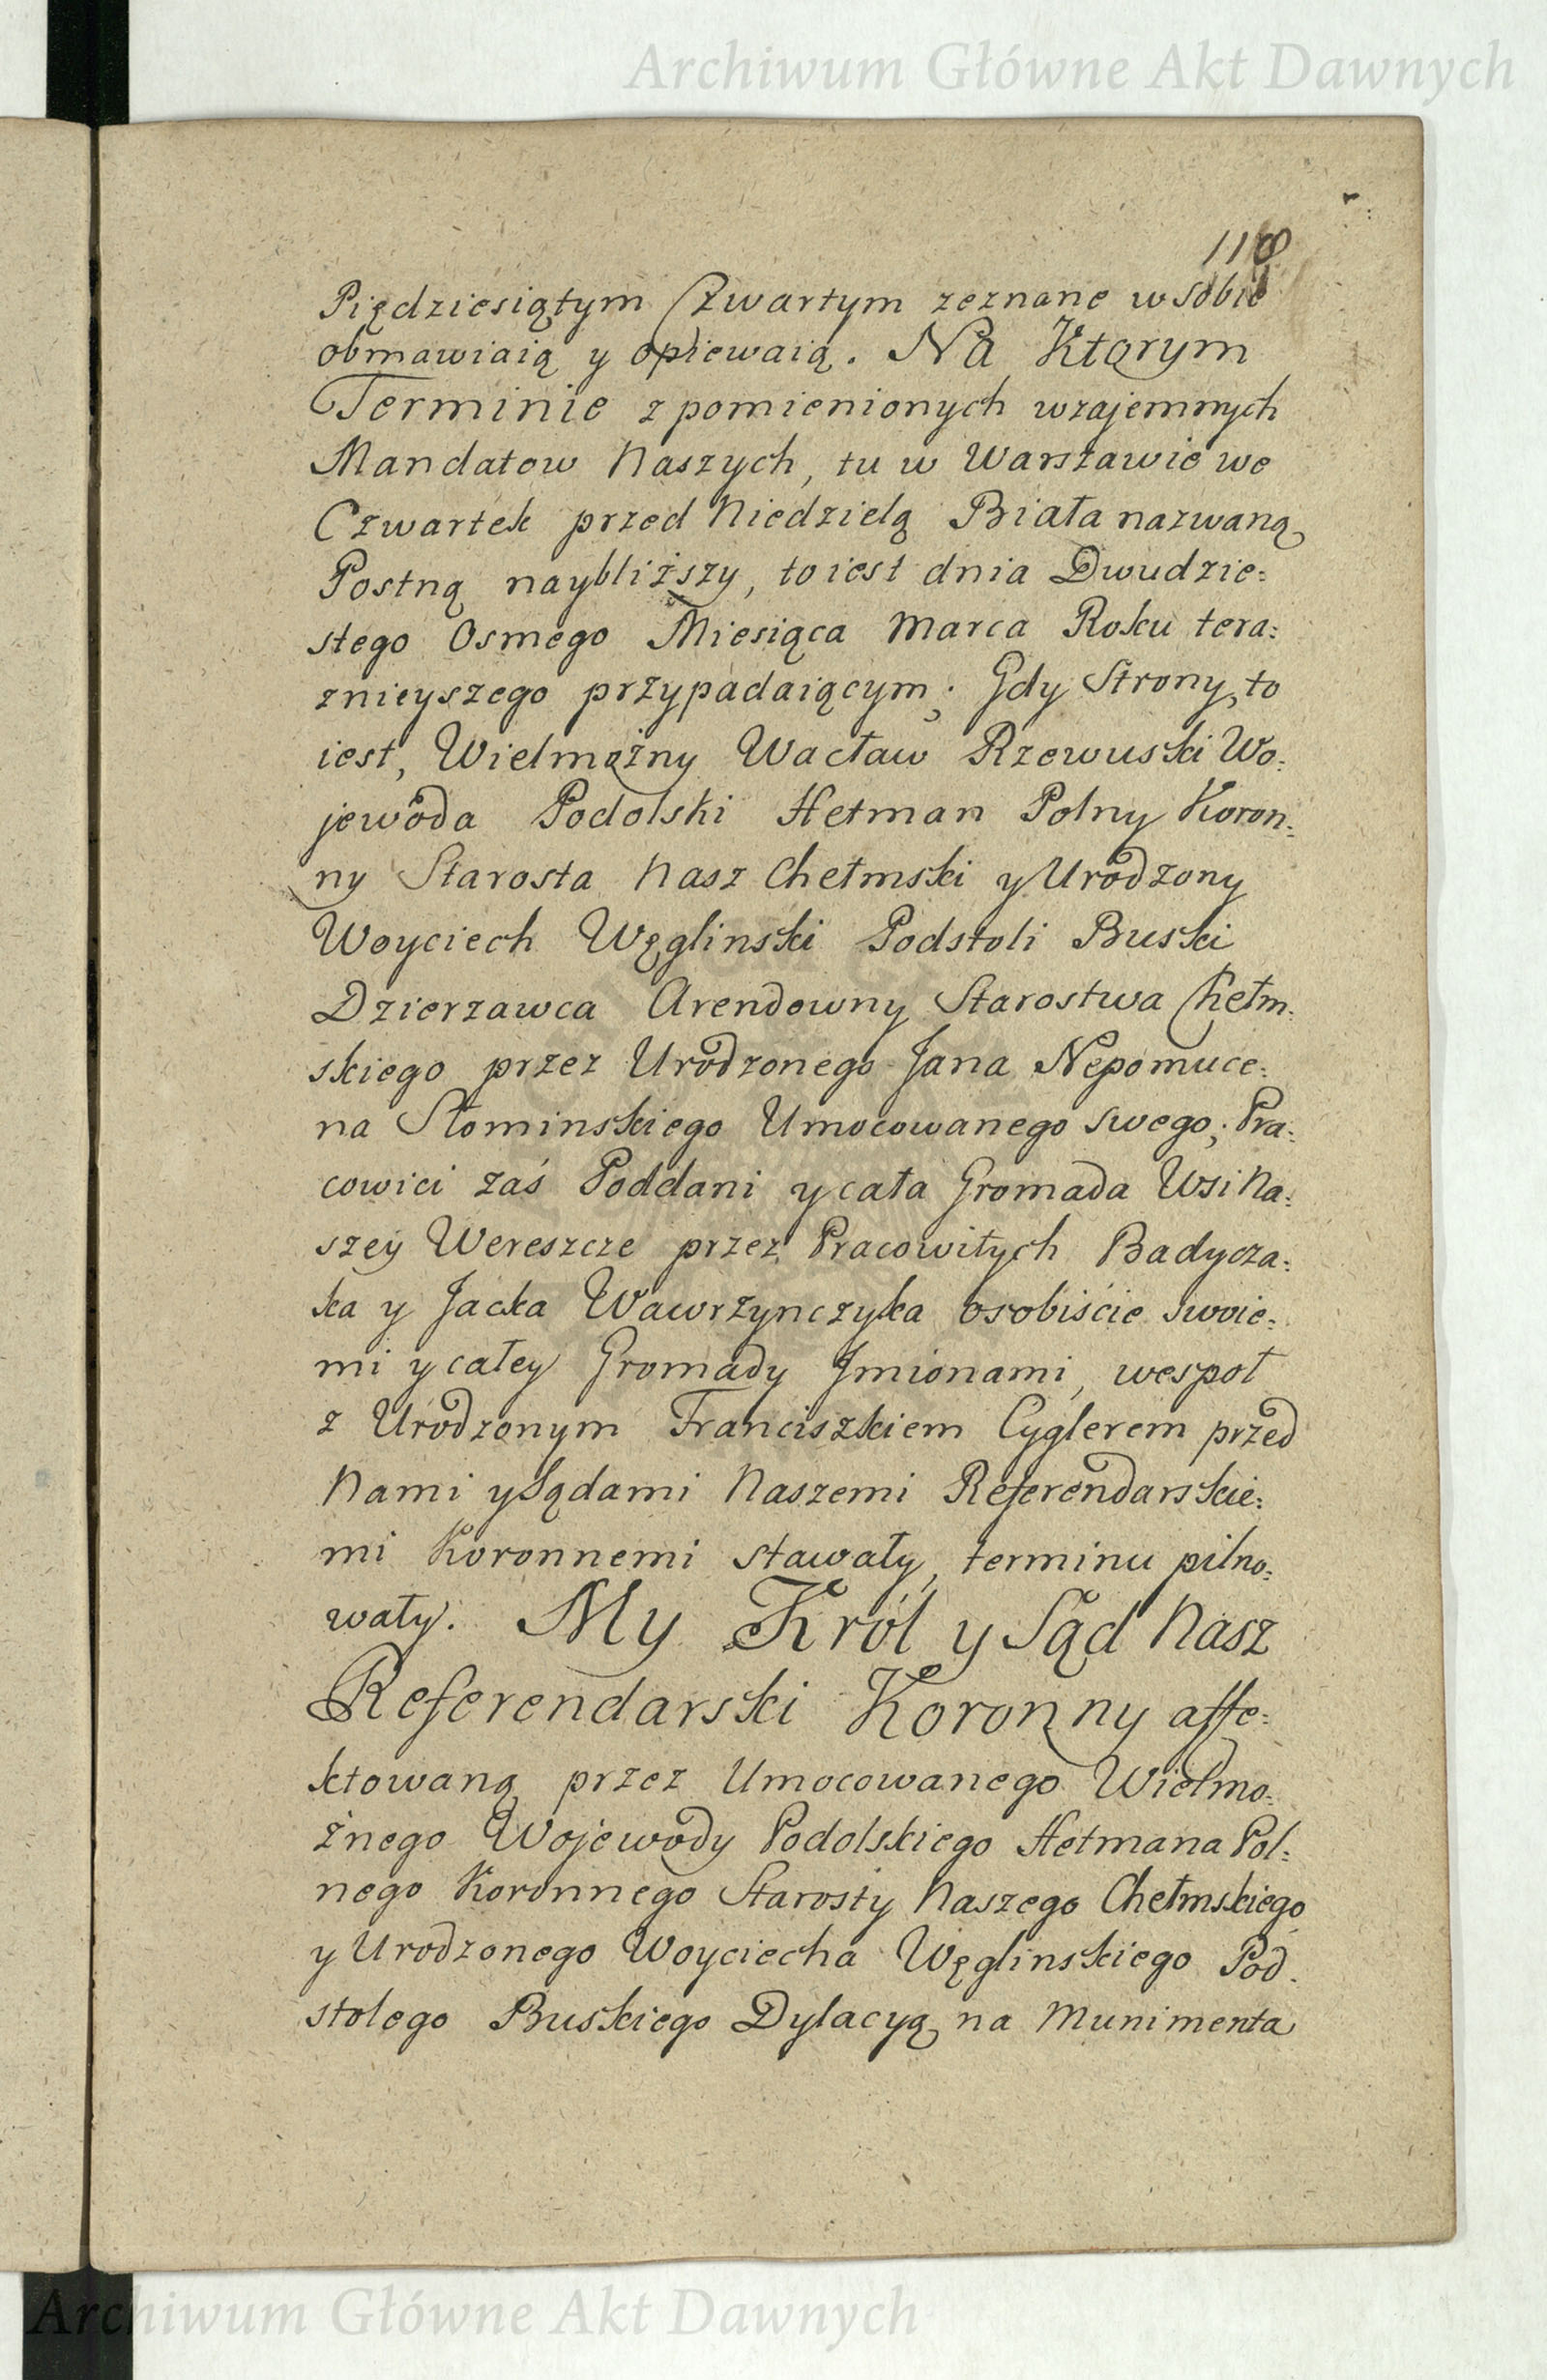 Archiwum Główne Akt Dawnych
118
Piędziesiątym Czwartym zeznane w sobie
obmawiaią y opiewaią. Na Ktorym
Terminie z pomienionych wzajemnych
Mandatow Naszych, tu w Warszawie we
Czwartek przed Niedzielą Biała nazwaną
Postną naybliższy, to iest dnia Dwudzie=
stego Osmego Miesiąca Marca Roku tera=
znieyszego przypadaiącym; Gdy Strony, to
iest, Wielmożny Wacław Rzewuski Wo=
jewoda Podolski Hetman Polny Koron=
ny Starosta Nasz Chełmski y Urodzony
Woyciech Węglinski Podstoli Buski
Dzierzawca Arendowny Starostwa Chełm=
skiego przez Urodzonego Jana Nepomuce=
na Słominskiego Umocowanego swego; Pra=
cowici zaś Poddani y cała Gromada Wsi Na=
szey Wereszcze przez Pracowitych Badycza=
ka y Jacka Wawrzynczyka osobiście swoie=
mi y całey Gromady Jmionami, wespoł
z Urodzonym Franciszkiem Cyglerem przed
Nami y Sądami Naszemi Referendarskie=
mi Koronnemi stawały, terminu pilno=
wały. My Król y Sąd Nasz
Referendarski Koronny affe=
ktowaną przez Umocowanego Wielmo=
żnego Wojewody Podolskiego Hetmana Pol=
nego Koronnego Starosty Naszego Chełmskiego
y Urodzonego Woyciecha Węglinskiego Pod=
stolego Buskiego Dylacyą na Munimenta
Archiwum Główne Akt Dawnych